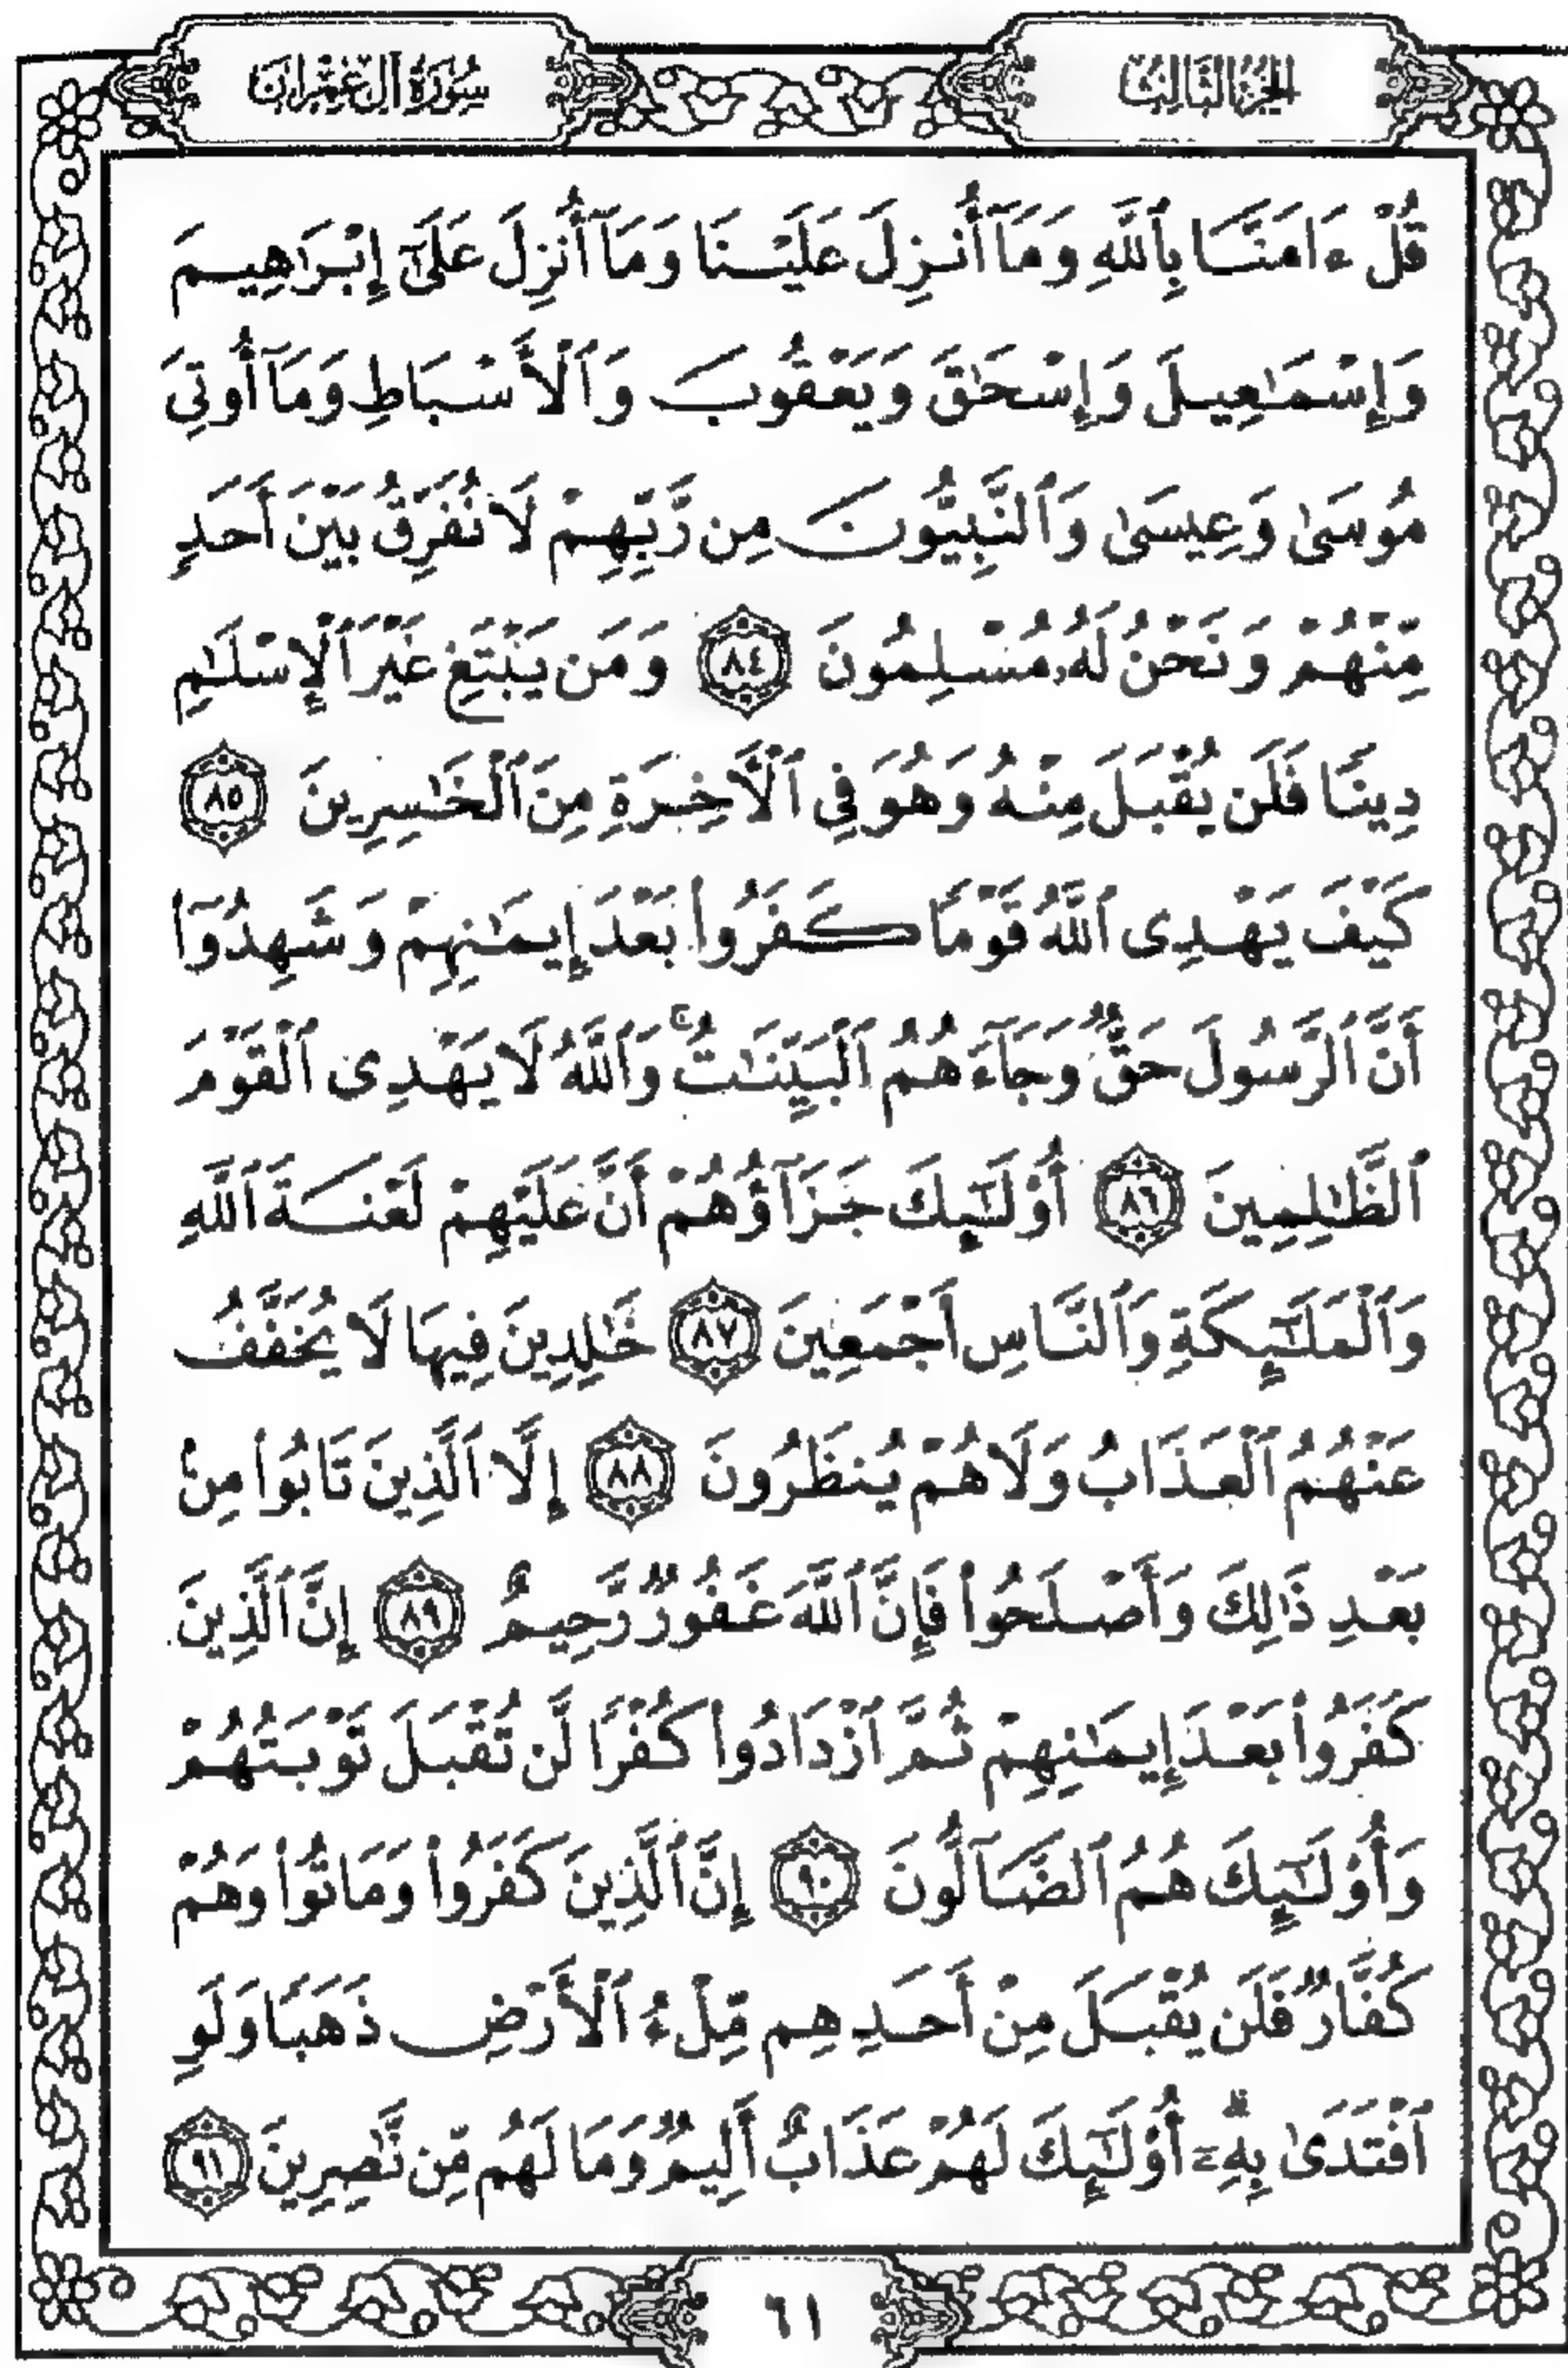 الجزء الثالث
سورة آل عمران
قُلْ ءَامَنَّا بِٱللَّهِ وَمَآ أُنزِلَ عَلَيْنَا وَمَآ أُنزِلَ عَلَىٰٓ إِبْرَٰهِيمَ
وَإِسْمَٰعِيلَ وَإِسْحَٰقَ وَيَعْقُوبَ وَٱلْأَسْبَاطِ وَمَآ أُوتِىَ
مُوسَىٰ وَعِيسَىٰ وَٱلنَّبِيُّونَ مِن رَّبِّهِمْ لَا نُفَرِّقُ بَيْنَ أَحَدٍ
مِّنْهُمْ وَنَحْنُ لَهُۥ مُسْلِمُونَ ٨٤ وَمَن يَبْتَغِ غَيْرَ ٱلْإِسْلَٰمِ
دِينًا فَلَن يُقْبَلَ مِنْهُ وَهُوَ فِى ٱلْأَخِرَةِ مِنَ ٱلْخَٰسِرِينَ ٨٥
كَيْفَ يَهْدِى ٱللَّهُ قَوْمًا كَفَرُوا۟ بَعْدَ إِيمَٰنِهِمْ وَشَهِدُوٓا۟
أَنَّ ٱلرَّسُولَ حَقٌّ وَجَآءَهُمُ ٱلْبَيِّنَٰتُ ۚ وَٱللَّهُ لَا يَهْدِى ٱلْقَوْمَ
ٱلظَّٰلِمِينَ ٨٦ أُو۟لَٰٓئِكَ جَزَآؤُهُمْ أَنَّ عَلَيْهِمْ لَعْنَةَ ٱللَّهِ
وَٱلْمَلَٰٓئِكَةِ وَٱلنَّاسِ أَجْمَعِينَ ٨٧ خَٰلِدِينَ فِيهَا لَا يُخَفَّفُ
عَنْهُمُ ٱلْعَذَابُ وَلَا هُمْ يُنظَرُونَ ٨٨ إِلَّا ٱلَّذِينَ تَابُوا۟ مِنۢ
بَعْدِ ذَٰلِكَ وَأَصْلَحُوا۟ فَإِنَّ ٱللَّهَ غَفُورٌ رَّحِيمٌ ٨٩ إِنَّ ٱلَّذِينَ
كَفَرُوا۟ بَعْدَ إِيمَٰنِهِمْ ثُمَّ ٱزْدَادُوا۟ كُفْرًا لَّن تُقْبَلَ تَوْبَتُهُمْ
وَأُو۟لَٰٓئِكَ هُمُ ٱلضَّآلُّونَ ٩٠ إِنَّ ٱلَّذِينَ كَفَرُوا۟ وَمَاتُوا۟ وَهُمْ
كُفَّارٌ فَلَن يُقْبَلَ مِنْ أَحَدِهِم مِّلْءُ ٱلْأَرْضِ ذَهَبًا وَلَوِ
ٱفْتَدَىٰ بِهِۦٓ ۗ أُو۟لَٰٓئِكَ لَهُمْ عَذَابٌ أَلِيمٌ وَمَا لَهُم مِّن نَّٰصِرِينَ ٩١
٦١